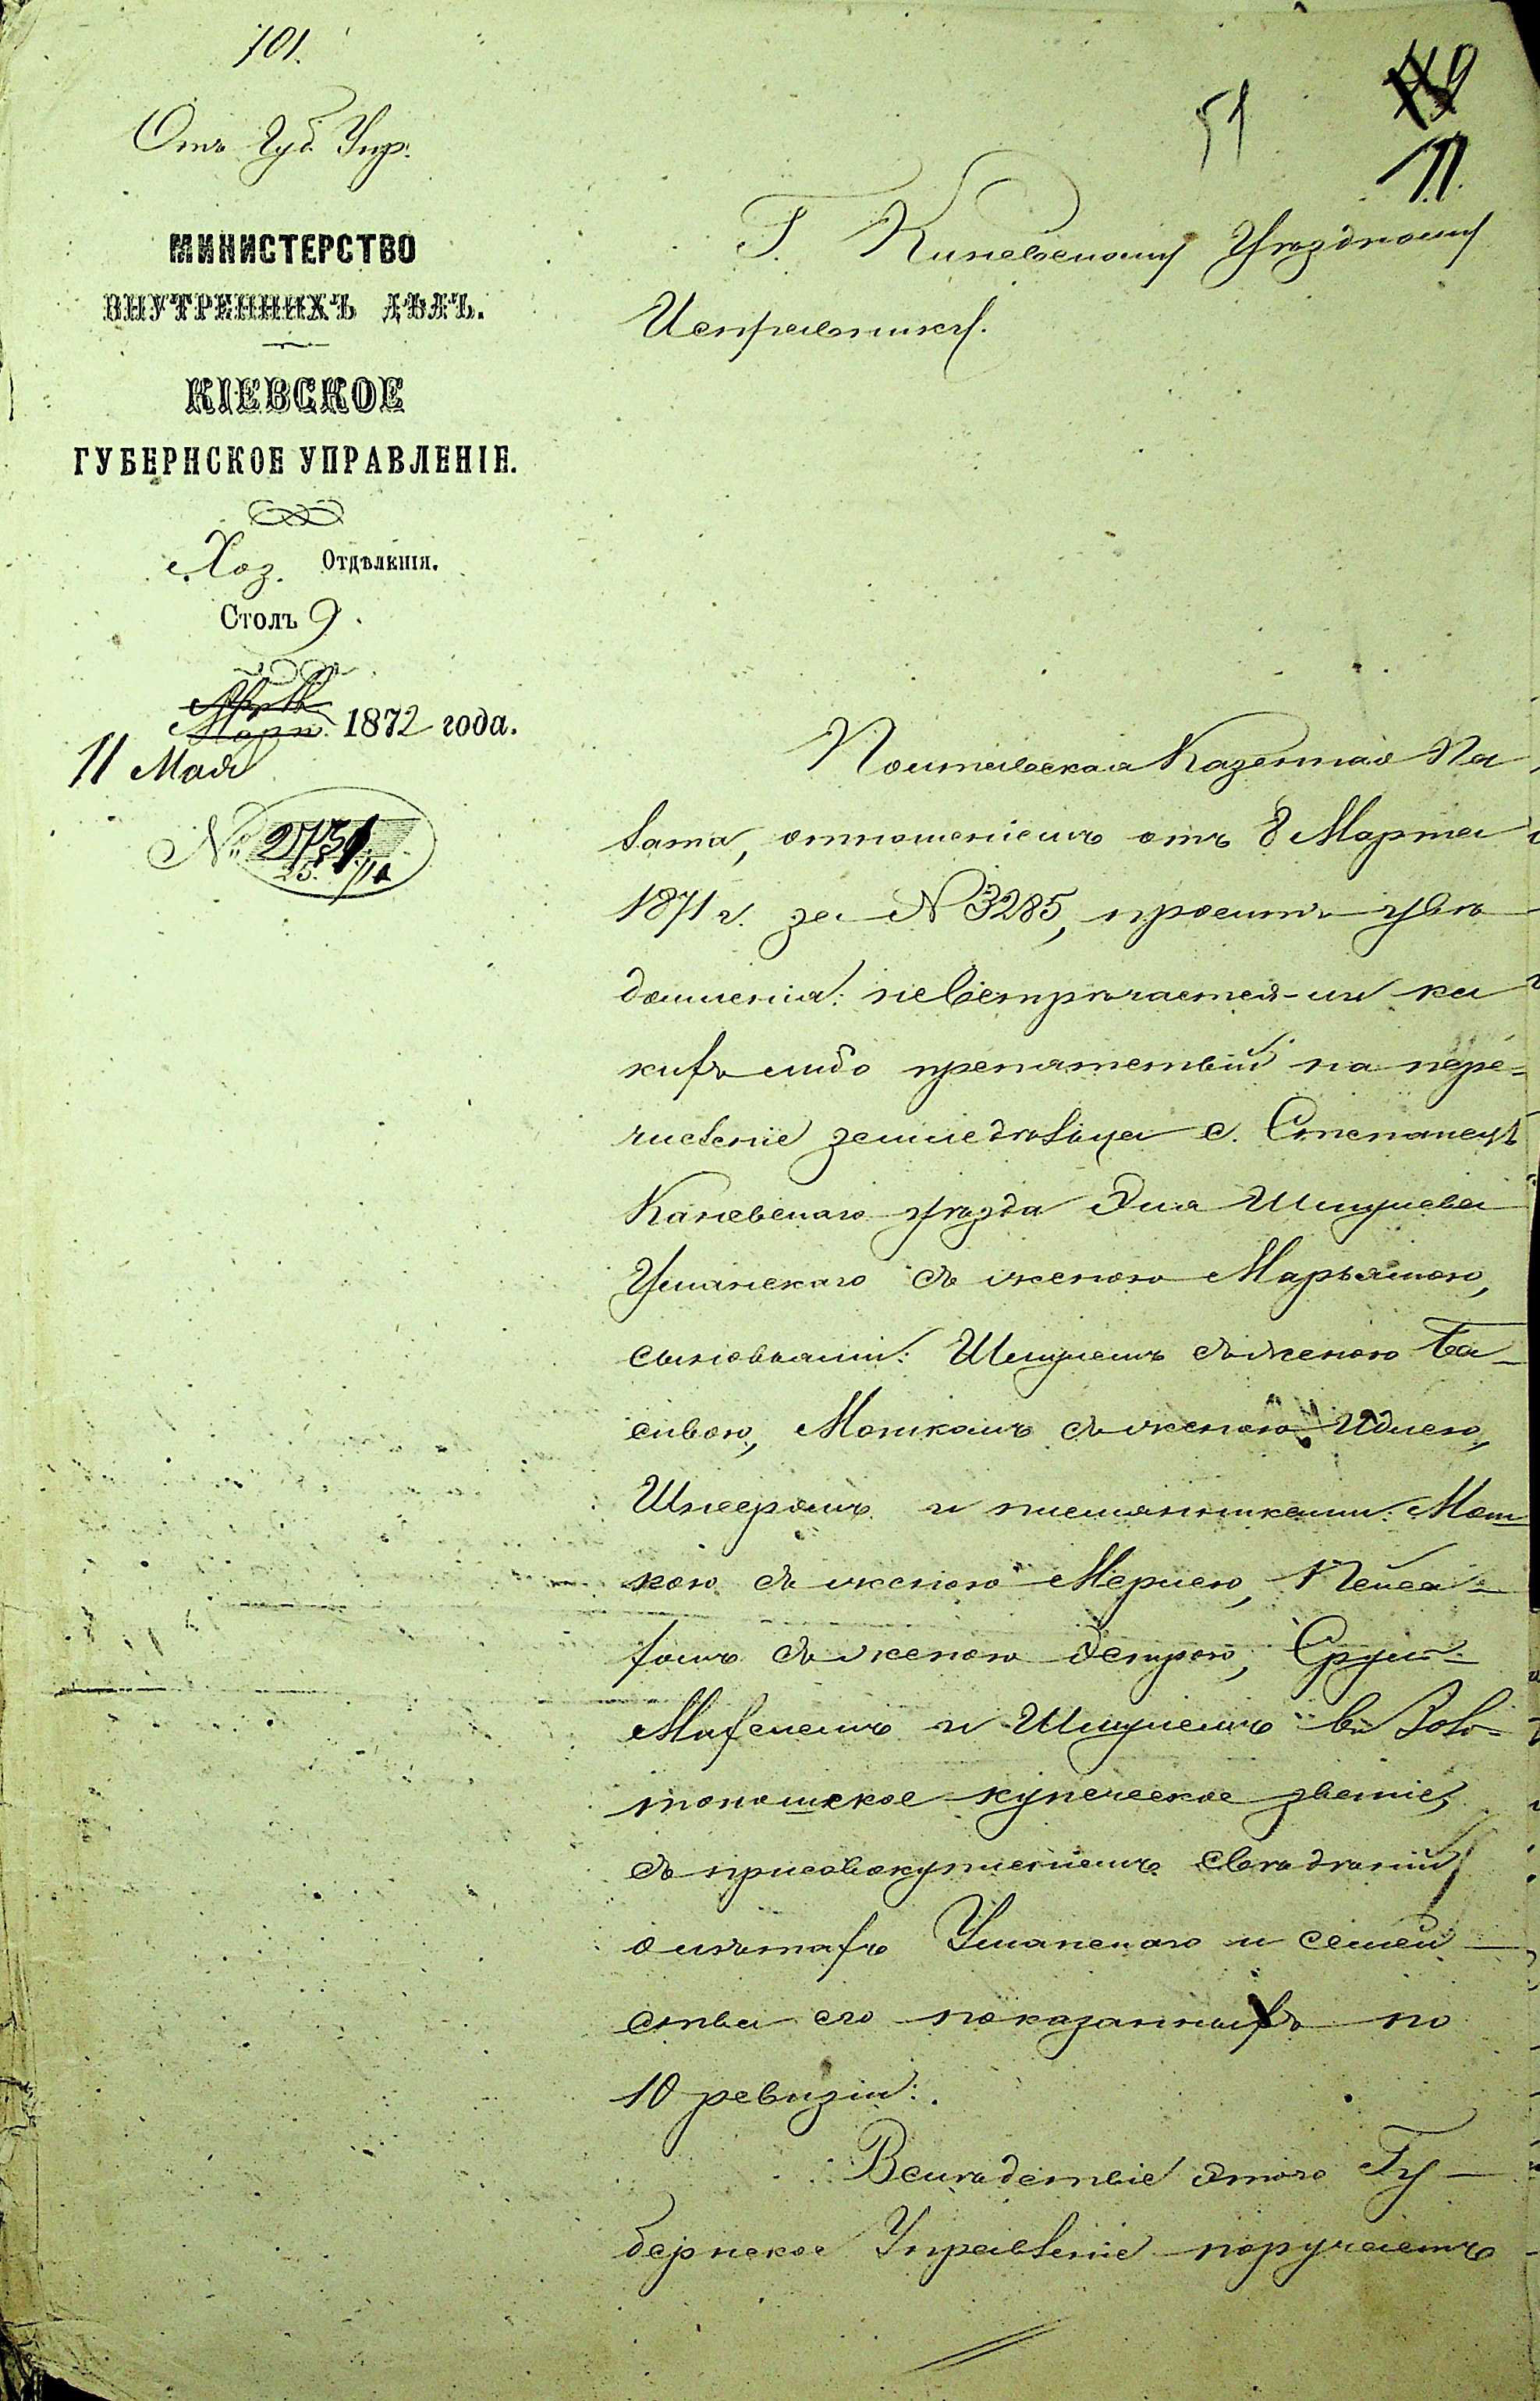 101.
Отъ Губ. Упр.
51
11.
МИНИСТЕРСТВО
ВНУТРЕННИХЪ ДѢЛЪ.
КІЕВСКОЕ
ГУБЕРНСКОЕ УПРАВЛЕНІЕ.
Хоз. Отдѣленія.
Столъ 9.
Март. 1872 года.
11 Мая
№ 2751
Г. Каневскому Уѣздному
Исправнику.
Полтавская Казенная Па
лата, отношеніемъ отъ 8 Марта
1871 г. за № 3285, проситъ увѣ
домленія: невстрѣчается-ли ка
кихъ либо препятствій на пере-
численіе земледѣльца с. Степанецъ
Каневскаго уѣзда Эля Шмулева
Уманскаго съ женою Марьямою,
сыновьями: Шмулемъ съ женою Ба-
сивою, Мошкомъ съ женою Идлею,
Шнееромъ и племянниками: Мош
кою съ женою Мерлею, Пейса-
хомъ съ женою Эстрою, Срул-
Михелемъ и Шмулемъ въ Золо-
тоношское купеческое званіе,
съ присовокупленіемъ свѣдѣній
о лѣтахъ Уманскаго и семей
ства его показанныхъ по
10 ревизіи.
Вслѣдствіе этого Гу-
бернское Управленіе поручаетъ